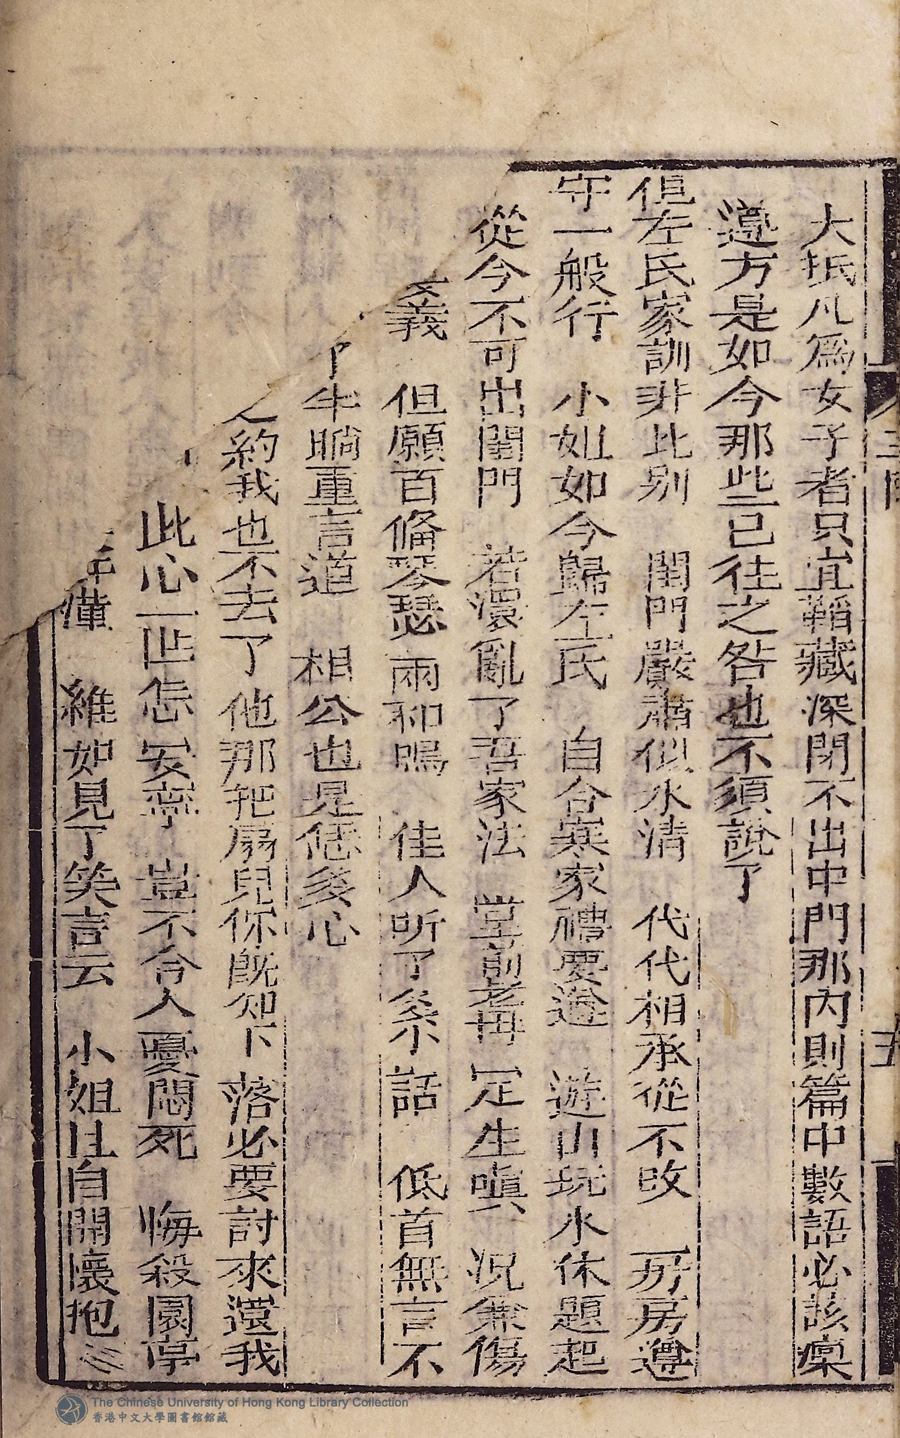 大抵凡為女子者只宜韜藏深閉不出中門那內則篇中數語必該稟
遵方是如今那些已往之咎也不須說了
但左氏家訓非比別 閨門嚴肅似水清 代代相承從不改 房房遵
守一般行 小姐如今歸左氏 自合寒家禮要遵 遊山玩水休題起
從今不可出閨門 若還亂了吾家法 堂前老母定生嗔 況兼傷
義 但願百俻琴瑟 兩和鳴 佳人听了条小話 低首無言不
了半晌重言道 相公也是恁多心
約我也不去了他那把扇兒你既知下落必要討來還我
此心一世怎安寧 豈不令人憂悶死 悔殺園亭
懂 維如見了笑言云 小姐且自開懷抱
五
The Chinese University of Hong Kong Library Collection
香港中文大學圖書館館藏